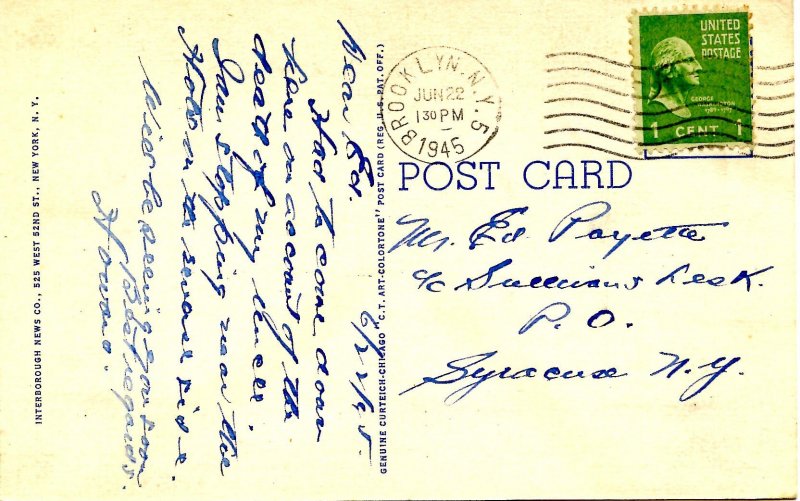 INTERBOROUGH NEWS CO., 525 WEST 52ND ST., NEW YORK, N. Y.
6/22/45.
Dear Ed.
Had to come down
here on account of the
death of my uncle.
I am stopping near the
Hotel on the reverse side.
Will be seeing you soon
Best regards.
Howard.
GENUINE CURTEICH-CHICAGO "C.T. ART-COLORTONE" POST CARD (REG. U.S. PAT. OFF.)
BROOKLYN, N.Y. 5
JUN 22
1 30 PM
1945
UNITED
STATES
POSTAGE
GEORGE
WASHINGTON
1789-1797
1 CENT 1
POST CARD
Mr. Ed Payette
c/o Sullivans Desk.
P. O.
Syracuse N. Y.